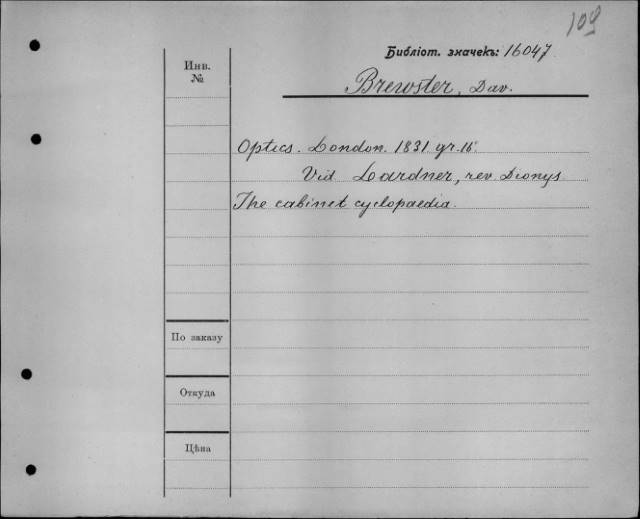 109
Библіот. значекъ: 16047
Инв.
№
Brewster, Dav.
Optics. London. 1831 gr. 16°
Vid. Lardner, rev. Dionys
The cabinet cyclopaedia.
По заказу
Откуда
Цѣна